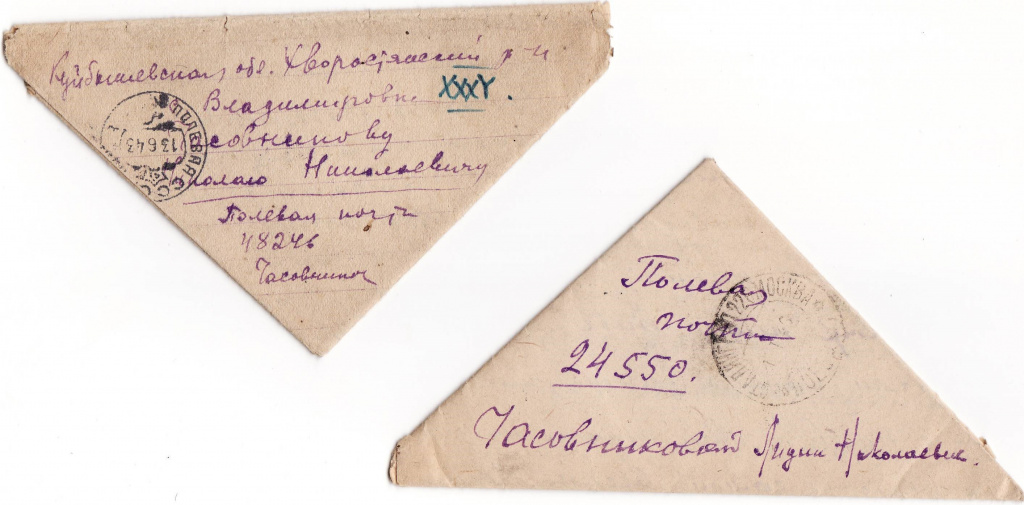 Куйбышевская обл. Хворостянский р-н
XXXV.
Владимировка
совникову
колаю Николаевичу
Полевая почта
48246
Часовникова
ПОЛЕВАЯ
13 6 43
Полевая
почта
24550.
Часовниковой Лидии Николаевне.
МОСКВА